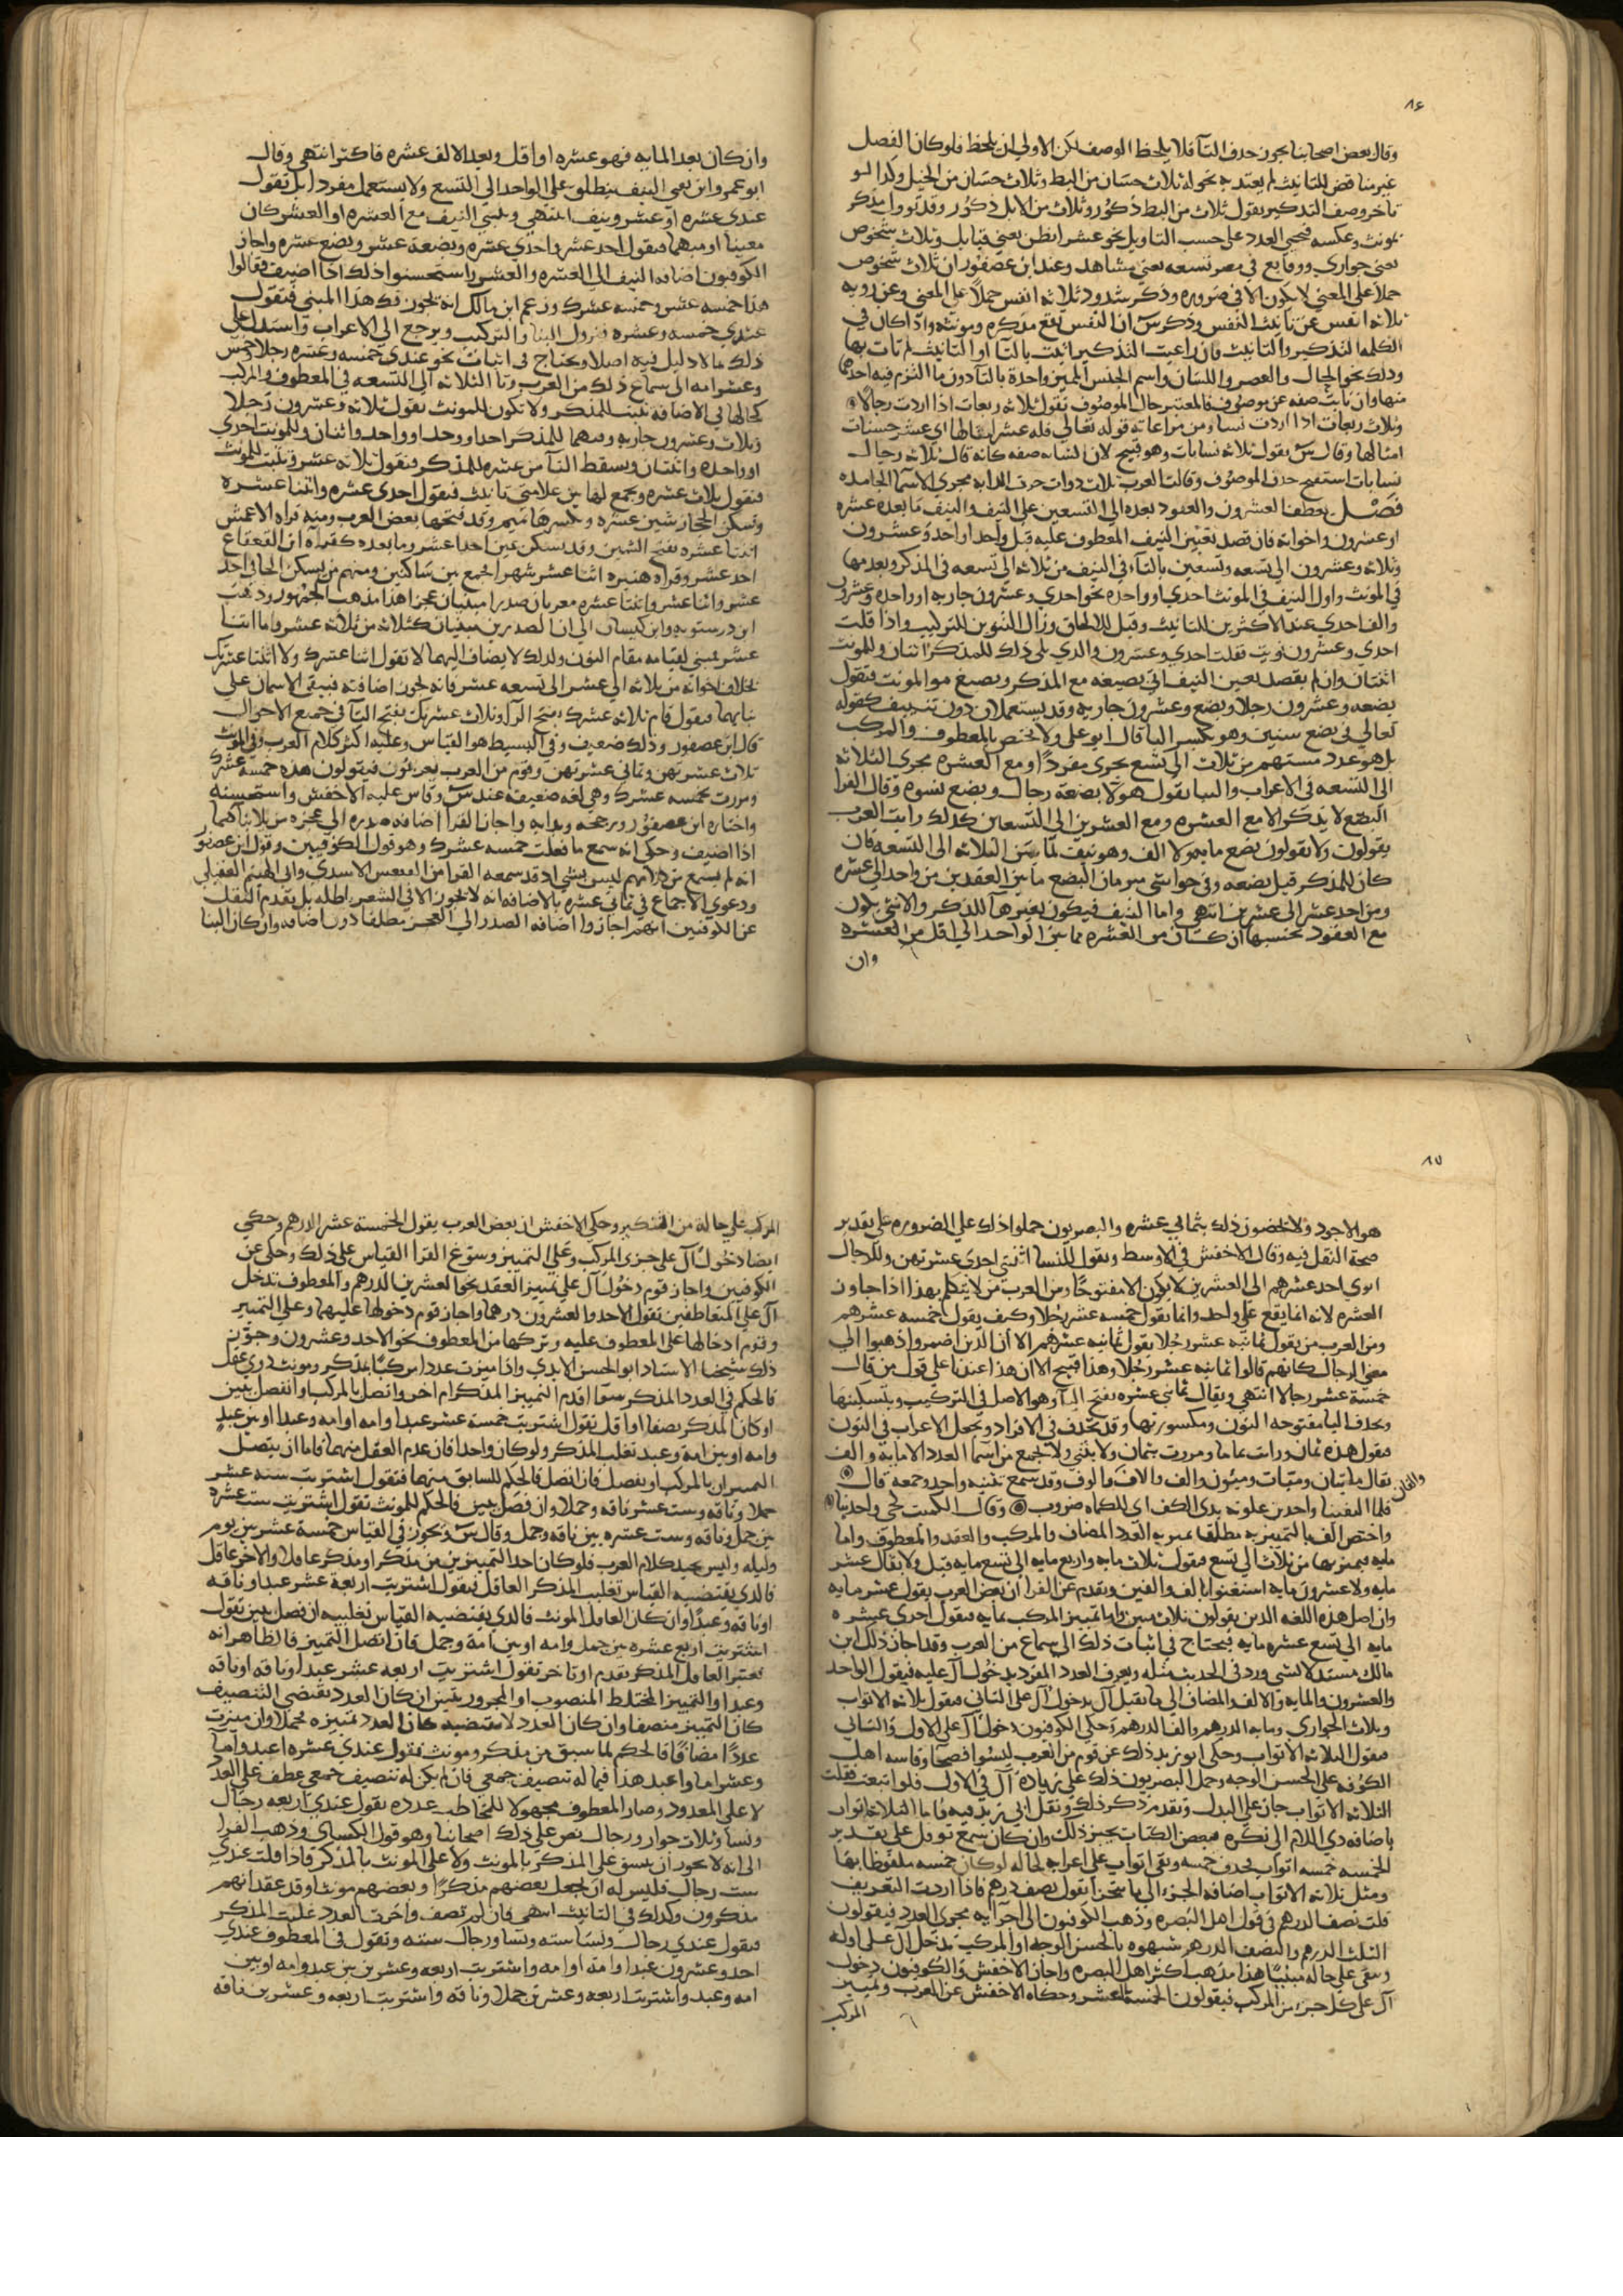 ٨٤
وقال بعض اصحابنا يجوز حذف التآ فلا يلحظ الوصف لكن الاولي ان يلحظ فلو كان الفصل
غير مناقض للتانيث لم يعتد به نحو له ثلاث حسان من البط وثلاث حسان من الخيل وكذا لو
تاخر وصف التذكير يقول ثلاث من البط ذكور وثلاث من الابل ذكور وقد يوول مذكر
بمونث وعكسه فيجي العدد على حسب التاويل نحو عشر ابطن يعني قبايل وثلاث شخوص
يعني جواري ووقايع في مصر تسعه يعني مشاهد وعند ابن عصفور ان ثلاث شخوص
حملا على المعنى لا يكون الا في ضروره وذكر شذوذ ثلاثه انفس حملا على المعنى وعن رويه
ثلاثه انفس عن تانيث النفس وذكر س ان النفس يقع مذكره ومونثه واذا كان في
الكلمه التذكير والتانيث فان راعيت التذكير اتيت بالتآ او التانيث لم تات بها
وذلك نحو الحال والعصر واللسان واسم الجنس المميز واحدة بالتآ دون ما التزم فيه احدهما
منها وان نابت صفه عن موصوف فالمعتبر حال الموصوف تقول ثلاثه ربعات اذا اردت رجالا
وثلاث ربعات اذا اردت نسا ومن مراعاته قوله تعالي فله عشر امثالها اي عشر حسنات
امثالها وقال س يقول ثلاثه نسابات وهو قبيح لان النسابه صفه كانه قال ثلاثه رجال
نسابات استقبح حذف الموصوف وقالت العرب ثلاث دوات جرت الدابه مجرى الاسما الجامده
فصل يعطف العشرون والعقود بعده الي التسعين على النيف والنيف ما بعده عشره
او عشرون واخواته فان قصد تعيين النيف المعطوف عليه قيل واحد او احد وعشرون
وثلاثه وعشرون الي تسعه وتسعين بالتآء في النيف من ثلاثه الي تسعه في المذكر وبعدمها
في المونث واول النيف في المونث احدي او واحده نحو احدي وعشرون جاريه او واحده وعشرون
والف احدي عند الاكثرين للتانيث وقيل للالحاق وزال التنوين للتركيب واذا قلت
احدي وعشرون نويت فقلت احدي وعشرون والذي يلي ذلك للمذكر اثنان وللمونث
اثنتان وان لم يقصد تعيين النيف اتي بصيغه مع المذكر وبصيغ مع المونث فتقول
بضعه وعشرون رجلا وبضع وعشرون جاريه وقد يستعملان دون تنييف كقوله
تعالي في بضع سنين وهو بكسر البا قال ابو علي ولا يختص بالمعطوف والمركب
بل هو عدد مستبهم من ثلاث الى تسع يجرى مفردا ومع العشره مجرى الثلاثه
الى التسعه في الاعراب والبنا يقول هولا بضعة رجال وبضع نسوه وقال الفرا
البضع لا يذكر الا مع العشره ومع العشرين الى التسعين كذلك رايت العرب
يقولون ولا يقولون بضع مايه ولا الف وهو نيف لما بين الثلاثه الى التسعه فان
كان للمذكر قيل بضعه وفي حواشي مبرمان البضع ما بين العقدين من واحد الي عشره
ومن احد عشر الى عشرين انتهي واما النيف فيكون بغير هآ للمذكر والانثى يكون
مع العقود بحسبها ان كان من العشره مما بين الواحد الي اقل من العشره
وان
وان كان بعد المايه فهو عشره او اقل وبعد الالف عشره فاكثر انتهى وقال
ابو عمر وابن يعيي النيف ينطلق علي الواحد الى التسع ولا يستعمل مفردا بل تقول
عندي عشره او عشر ونيف انتهي ويبني النيف مع العشره او العشر كان
معينا او مبهما فيقول احد عشر واحدي عشره وبضعه عشر وبضع عشره واجاز
الكوفيون اضافه النيف الى العشره والعشر واستحسنوا ذلك اذا اضيف فقالوا
هذا خمسه عشر وخمسه عشرك وزعم ابن مالك انه يجوز فك هذا المبنى فتقول
عندي خمسه وعشره فيزول البنا والتركيب ويرجع الي الاعراب واستدل علي
ذلك ما لا دليل فيه اصلا ويحتاج في اثبات نحو عندي خمسه وعشره رجلا وخمس
وعشر امه الى سماع ذلك من العرب وتا الثلاثه الى التسعه في المعطوف والمركب
كحالها في الاضافه تثبت للمذكر ولا تكون للمونث يقول ثلاثه وعشرون رجلا
وثلاث وعشرون جاريه وفيهما للمذكر احد او وحد او واحد واثنان وللمونث احدي
او واحده واثنتان ويسقط التآ من عشره للمذكر فتقول ثلاثه عشر وتثبت للمونث
فتقول ثلاث عشره ويجمع لها بين علامتي تانيث فيقول احدى عشره واثنتا عشره
وتسكن الحجاز شين عشره ويكسرها تميم وقد فتحها بعض العرب ومنه قراه الاعمش
اثنتا عشره بفتح الشين وقد يسكن عين احد عشر وما بعده كقراه ابن القعقاع
احد عشر وقراه هبيره اثنا عشر شهرا بجمع بين ساكنين ومنهم من يسكن الحا في احد
عشر واثنا عشر واثنتا عشره معربان صدرا مبنيان عجزا هذا مذهب الجمهور وذهب
ابن درستويه وابن كيسان الى ان الصدرين مبنيان كثلاثه من ثلاثه عشر واما اثنا
عشر فبني لقيامه مقام النون ولذلك لا يضاف اليهما لا تقول اثنا عشرك ولا اثنتا عشرتك
بخلاف اخواته من ثلاثه الي عشر الى تسعه عشر فانه يجوز اضافته فيبقى الاسمان على
بنايهما فيقول قام ثلاثه عشرك بفتح الرا وثلاث عشرتك بفتح التآ في جميع الاحوال
قال ابن عصفور وذلك ضعيف وفي البسيط هو القياس وعليه اكثر كلام العرب وفي المونث
ثلاث عشرتهن وثماني عشرتهن وقوم من العرب يعربون فيقولون هذه خمسه عشرك
ومررت بخمسه عشرك وهي لغه ضعيفه عند س وقاس عليه الاخفش واستحسنه
واختاره ابن عصفور ورجحه وبدابه واجاز الفرا اضافه صدره الي عجزه مزيلا بناهما
اذا اضيف وحكي انه سمع ما فعلت خمسه عشرك وهو قول الكوفيين وقول ابن عصفور
انه لم يسمع من كلامهم ليس بشي اذ قد سمعه الفرا من ابي فقعس الاسدي وابي الهيثم العقيلي
ودعوي الاجماع في ثماني عشره بالاضافه انه لا يجوز الا في الشعر باطله بل تقدم النقل
عن الكوفيين انهم اجازوا اضافه الصدر الي العجز مطلقا دون اضافه وان كان البنا
٨٥
هو الاجود ولا يخصون ذلك بثماني عشره والبصريون حملوا ذلك علي الضروره على تقدير
صحة النقل فيه وقال الاخفش في الاوسط ويقول للنسا اثنتي احدي عشرتهن وللرجال
ابوي احد عشرهم الى العشرين لا يكون الا مفتوحا ومن العرب من لا يتكلم بهذا اذا جاوز
العشره لانه انما يقع علي واحد وانما يقول خمسه عشر رجلا وكيف يقول خمسه عشرهم
ومن العرب من يقول ثمانيه عشر رجلا يقول ثمانيه عشرهم الا ان الذين اضمروا ذهبوا الي
معنى الرجال كانهم قالوا ثمانيه عشر رجلا وهذا قبيح الا ان هذا عندنا على قول من قال
خمسة عشر رجالا انتهى ويقال ثماني عشره بفتح اليآ وهو الاصل في التركيب وبتسكينها
وبحذف اليا مفتوحه النون ومكسورتها وقد تحذف في الافراد ويجعل الاعراب في النون
فيقول هذه ثمان ورايت ثمانا ومررت بثمان ولا يثني ولا يجمع من اسما العدد الا مايه والف
يقال مايتان ومئيات وميئون والف والاف والوف وقد سمع تثنيه واحد وجمعه قال
والفان
فلما التقينا واحدين علوته بذي الكف اي للكماه ضروب وقال الكميت كحي واحدينا
واختص الف بالتمييز به مطلقا يميز به العدد المضاف والمركب والعقد والمعطوف واما
مايه فيميز بها من ثلاث الي تسع فيقول ثلاث مايه واربع مايه الي تسع مايه قيل ولا يقال عشر
مايه ولا عشرون مايه استغنوا بالف والفين وتقدم عن الفرا ان بعض العرب يقول عشر مايه
وان اصل هذه اللغه الذين يقولون ثلاث مئين واما تمييز المركب بمايه فيقول احدي عشره
مايه الي تسع عشره مايه فيحتاج في اثبات ذلك الى سماع من العرب وقد اجاز ذلك ابن
مالك مستدلا لشي ورد في الحديث مثله ويعرف العدد المفرد بدخول آل عليه فيقول الواحد
والعشرون والمايه والالف والمضاف الي ما يقبل آل بدخول آل على الثاني فيقول ثلاثه الاثواب
وثلاث الجواري ومايه الدرهم والف الدرهم وحكى الكوفيون دخول آل على الاول والثاني
فيقول الثلاثه الاثواب وحكى ابو زيد ذلك عن قوم من العرب ليسوا فصحآ وقاسه اهل
الكوفه على الحسن الوجه وحمل البصريون ذلك على زيادة آل في الاول فلو اتبعت فقلت
الثلاثه الاثواب جاز على البدل وتقدم ذكر ذلك ونقل ابي زيد فيه فاما الثلاثه اثواب
باضافه ذي اللام الى نكره فبعض الكتاب يجيز ذلك وان كان سمع تووّل على تقدير
الخمسه خمسه اثواب بحذف خمسه وبقي اثواب على اعرابه لحاله لو كان خمسه ملفوظا بها
ومثل ثلاثه الاثواب اضافه الجزء الي ما يتجزا يقول نصف درهم فاذا اردت التعريف
قلت نصف الدرهم في قول اهل البصره وذهب الكوفيون الى اجرآيه مجرى العدد فيقولون
الثلث الدرهم والنصف الدرهم شبهوه بالحسن الوجه او المركب تدخل آل على اوله
ويبقى على حاله مبنيا هذا مذهب اكثر اهل البصره واجاز الاخفش والكوفيون دخول
آل على كل جزء من المركب فيقولون الخمسه العشر وحكاه الاخفش عن العرب وتمييز
المركب
المركب علي حاله من التنكير وحكي الاخفش ان بعض العرب يقول الخمسة عشر الدرهم وحكى
ايضا دخول آل على جزئ المركب وعلى التمييز وسوغ الفرا القياس على ذلك وحكى عن
الكوفيين واجاز قوم دخول آل علي تمييز العقد نحو العشرين الدرهم والمعطوف تدخل
آل على المتعاطفين تقول الاحد والعشرون درهما واجاز قوم دخولها عليهما وعلى التمييز
وقوم ادخالها على المعطوف عليه وتركها من المعطوف نحو الاحد وعشرون وجوّز
ذلك شيخنا الاستاد ابو الحسن الابدي واذا ميزت عددا مركبا بمذكر ومونث ذوي عقل
فالحكم في العدد المذكر سوا اقدم التمييز المذكر ام اخر واتصل بالمركب او انفصل ببين
او كان المذكر نصفا او اقل تقول اشتريت خمسة عشر عبدا وامه او امه وعبدا او بين عبد
وامه او بين امه وعبد تغلب المذكر ولو كان واحدا فان عدم العقل منهما فاما ان يتصل
التمييزان بالمركب او ينفصل فان اتصل فالحكم للسابق منهما فتقول اشتريت سته عشر
جملا وناقه وست عشر ناقه وجملا وان فصل ببين فالحكم للمونث تقول اشتريت ست عشره
بين جمل وناقه وست عشره بين ناقه وجمل وقال س ويجوز في القياس خمسة عشر بين يوم
وليله وليس بحيد كلام العرب فلو كان احد التمييزين من مذكر او مذكر عاقل والاخر عاقل
فالذي يقتضيه القياس تغليب المذكر العاقل فيقول اشتريت اربعة عشر عبدا وناقه
او ناقه وعبدا وان كان العاقل المونث فالذي يقتضيه القياس تغليبه ان فصل ببين تقول
اشتريت اربع عشره بين جمل وامه او بين امة وجمل فان اتصل التمييز فالظاهر انه
يعتبر العاقل المذكر تقدم او تاخر تقول اشتريت اربعه عشر عبدا وناقه او ناقه
وعبدا والتمييز المختلط المنصوب او المجرور ببين ان كان العدد يقتضي التنصيف
كان التمييز منصفا وان كان العدد لا يقتضيه كان العدد تمييزه مجملا وان ميزت
عددا مضافا فالحكم لما سبق من مذكر ومونث فيقول عندي عشره اعبد واما
وعشر اما واعبد هذا فيما له تنصيف جمعي فان لم يكن له تنصيف جمعي عطف على العدد
لا على المعدود وصار المعطوف مجهولا للمخاطب عدده يقول عندي اربعه رجال
ونسا وثلاث جوار ورجال نص على ذلك اصحابنا وهو قول الكساي وذهب الفرا
الى انه لا يجوز ان ينسق على المذكر بالمونث ولا على المونث بالمذكر فاذا قلت عندي
ست رجال فليس له ان يجعل بعضهم مذكرا وبعضهم مونثا وقد عقد انهم
مذكرون وكذلك في التانيث انتهى فان لم تصف واخرت العدد غلبت المذكر
فيقول عندي رجال ونسا سته ونسا ورجال سته وتقول في المعطوف عندي
احد وعشرون عبدا وامه او امه واشتريت اربعه وعشرين بين عبد وامه او بين
امه وعبد واشتريت اربعه وعشرين جملا وناقه واشتريت اربعه وعشرين ناقه